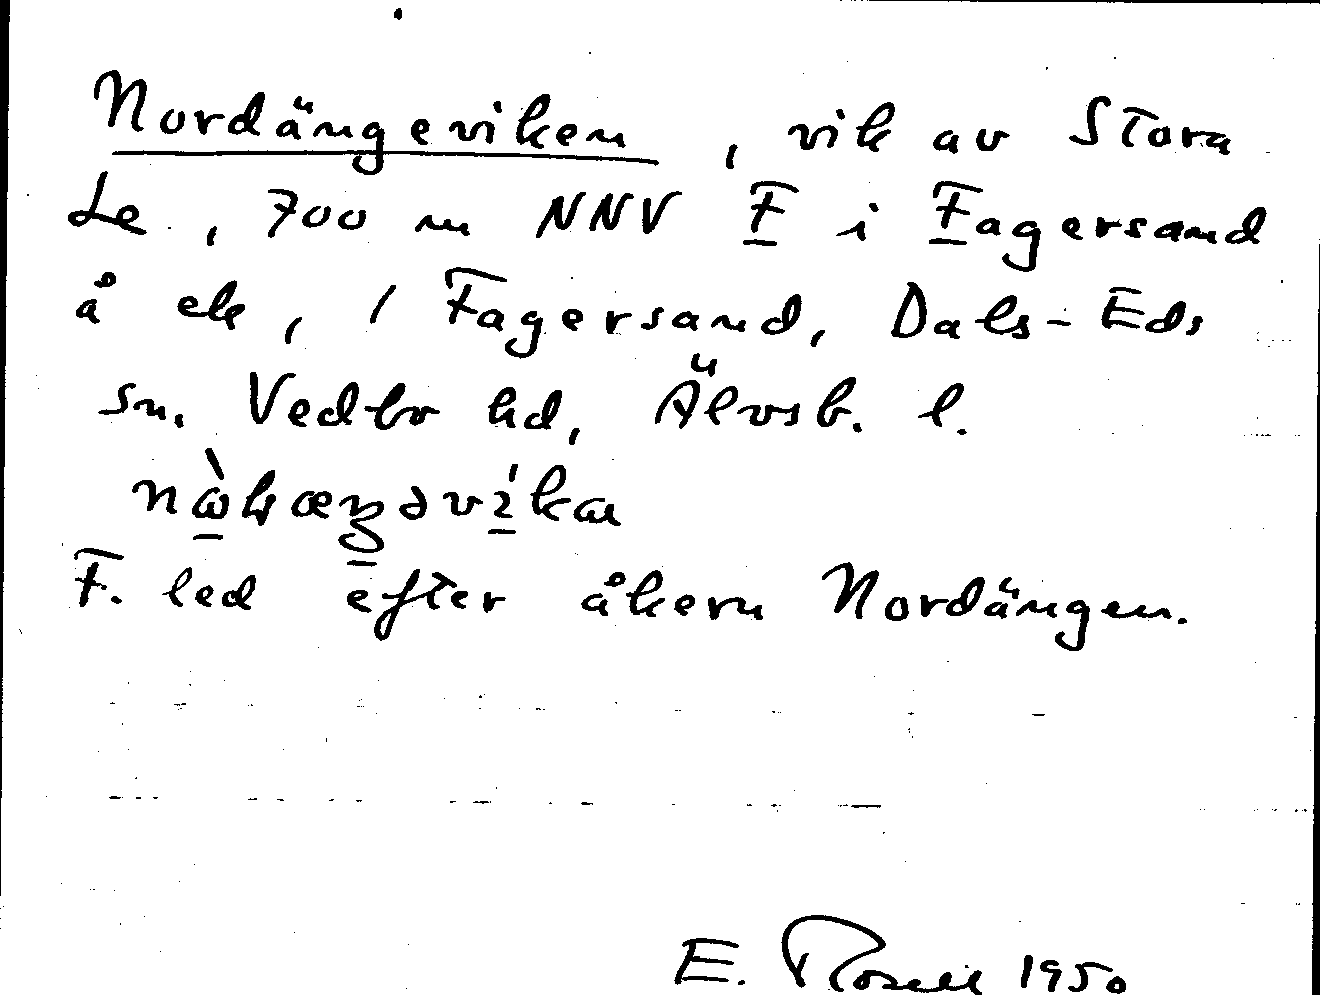 Nordängeviken, vik av Stora
Le, 700 m NNV F i Fagersand
å ek, / Fagersand, Dals-Eds
sn. Vedbo hd, Älvsb. l.
F. led efter åkern Nordängen.
E. Rosell 1950